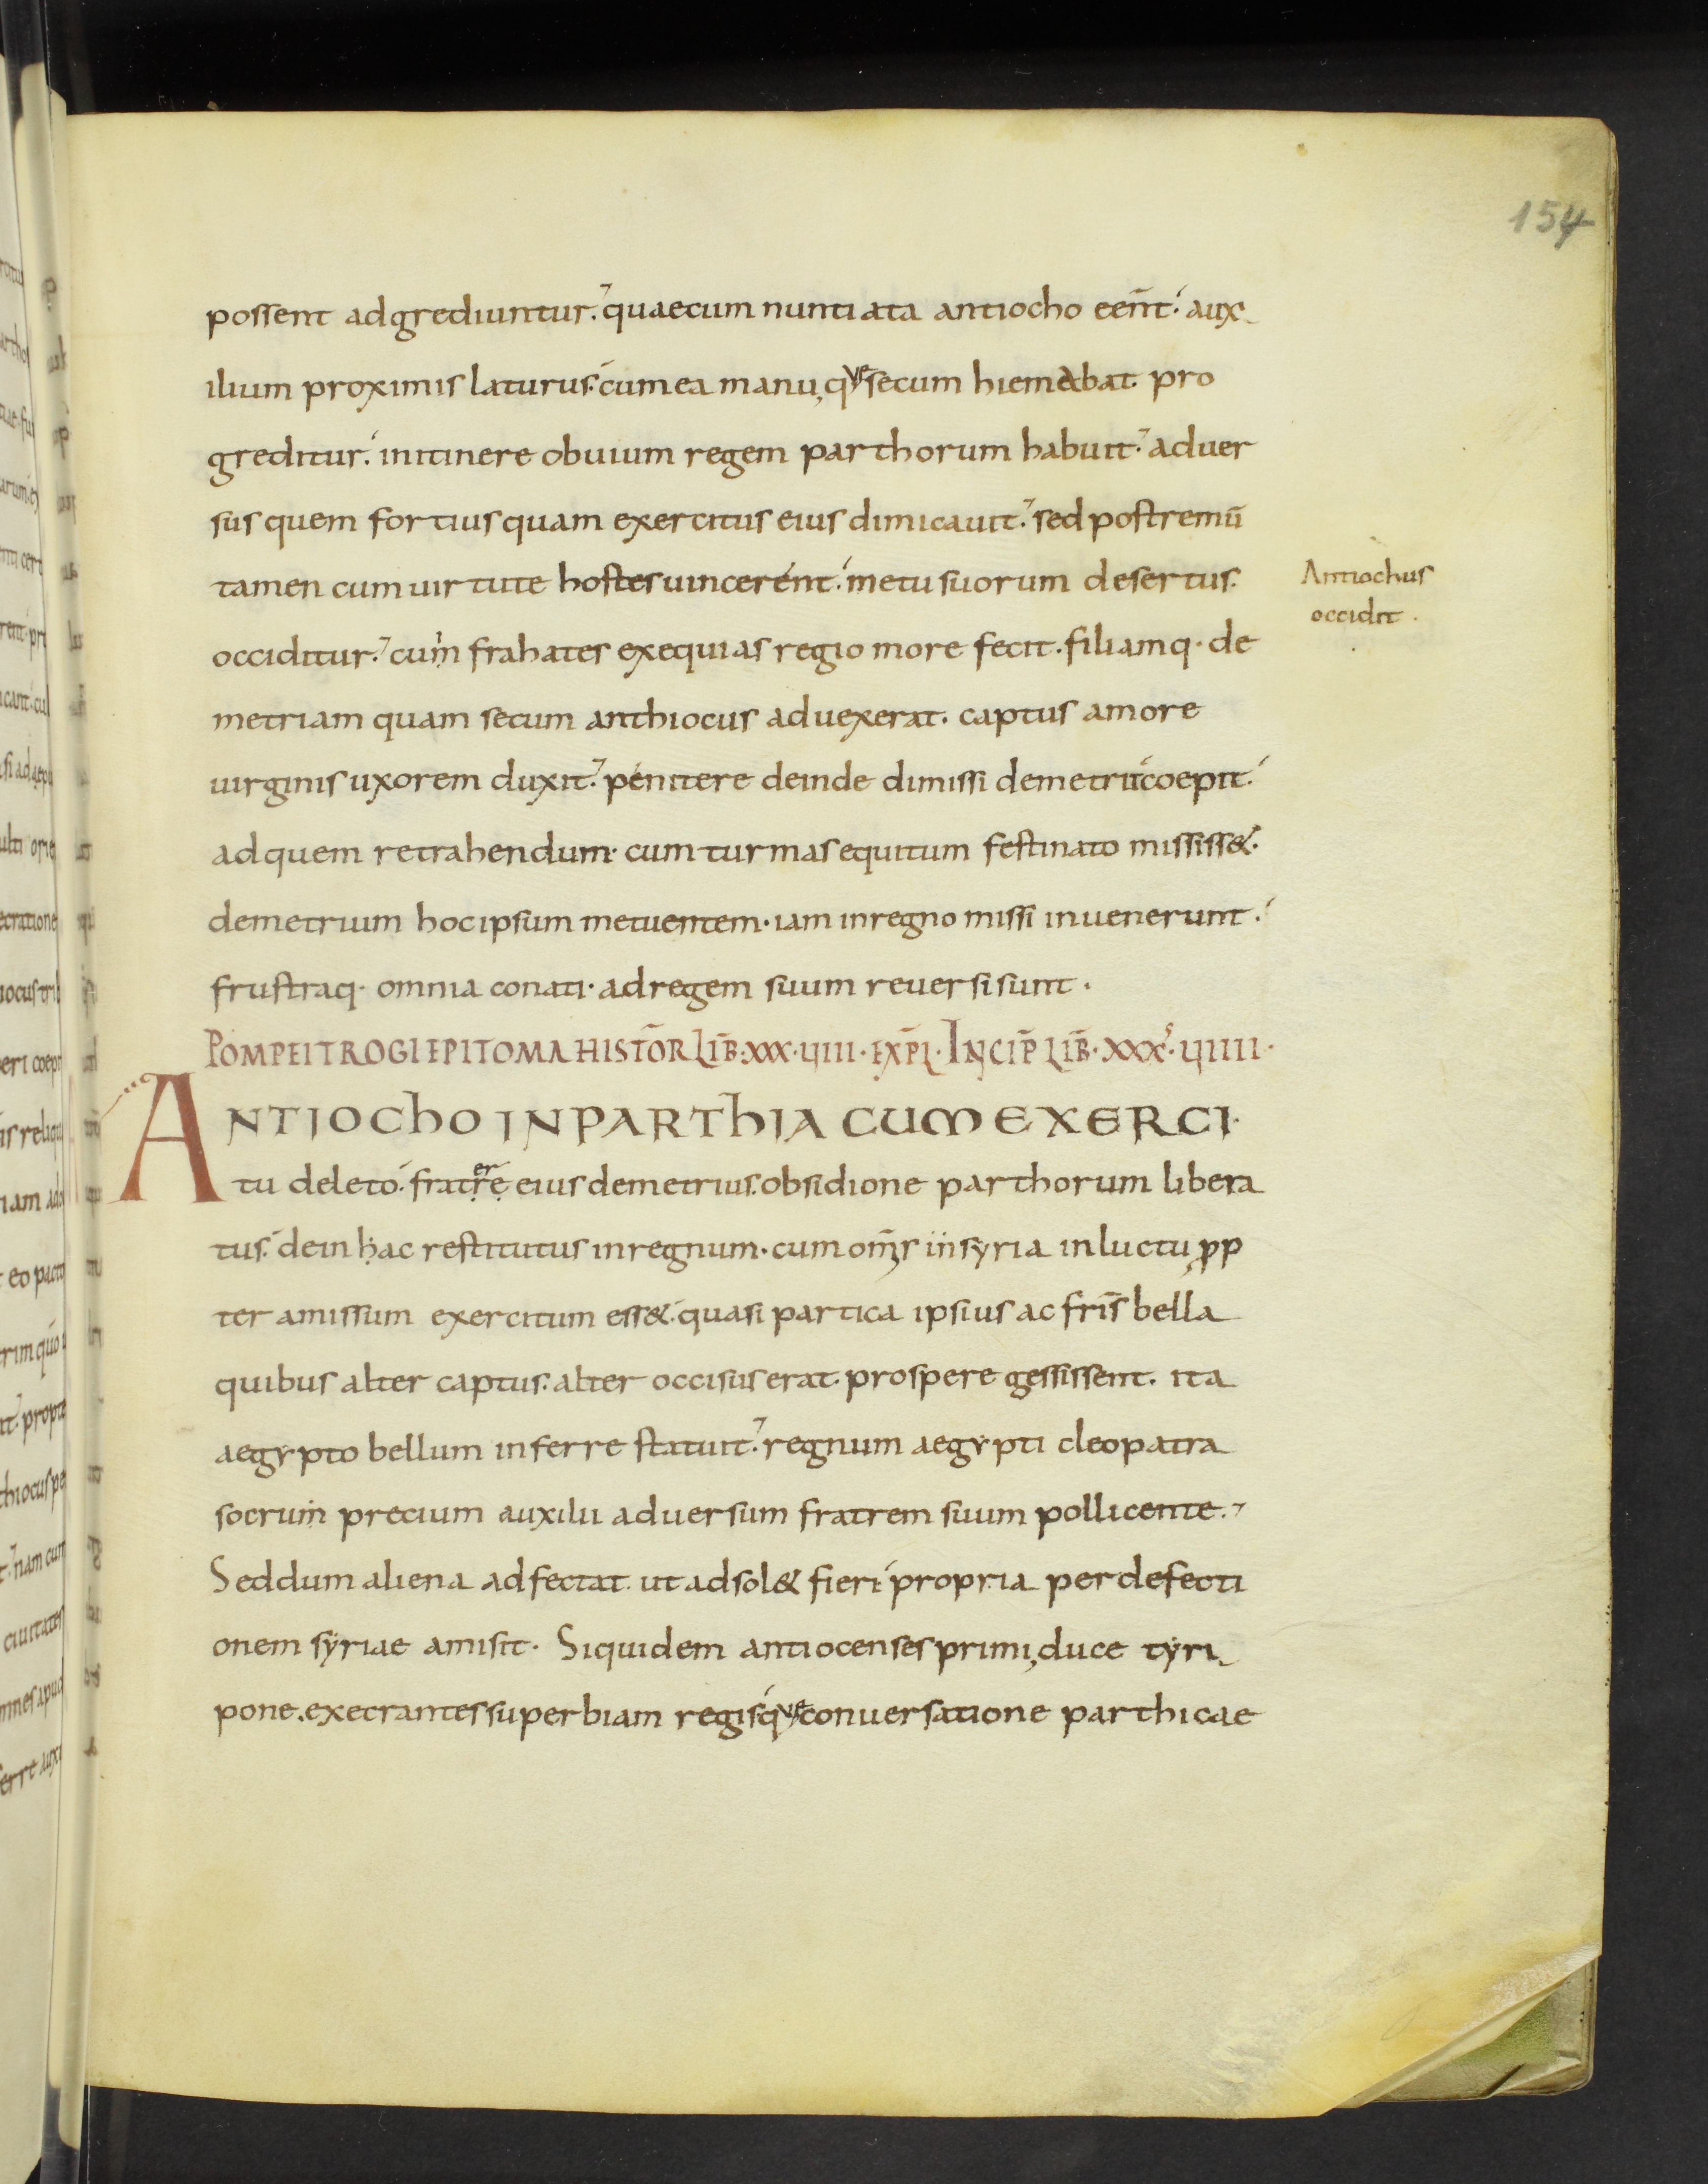 154
possent adgrediuntur. quae cum nuntiata antiocho eēnt. aux
ilium proximis laturus. cum ea manu, qve secum hiemabat. pro
greditur. in itinere obuium regem parthorum habuit. aduer
sus quem fortius quam exercitus eius dimicauit. sed postremū
tamen cum uirtute hostes uincerent. metu suorum desertus.
Antiochus
occidit.
occiditur. cum frahates exequias regio more fecit. filiamq· de
metriam quam secum anthiocus aduexerat. captus amore
uirginis uxorem duxit. penitere deinde dimissi demetrii coepit.
ad quem retrahendum· cum turmas equitum festinato misiss&.
demetrium hoc ipsum metuentem· iam in regno missi inuenerunt.
frustraq· omnia conati· ad regem suum reuersi sunt.
POMPEI TROGI EPITOMA HISTOR̄ LIB̄· XXX·UIIII· EXPL̄· INCIP̄ LIB̄· XXX·UIIIII·
ANTIOCHO IN PARTHIA CUM EXERCI·
tu deleto. fratre er eius demetrius. obsidione parthorum libera
tus. dein hac restitutus in regnum· cum om̄s in syria in luctu prop
ter amissum exercitum ess&. quasi partica ipsius ac fr̄is bella
quibus alter captus. alter occisus erat. prospere gessissent. ita
aegypto bellum inferre statuit. regnum aegypti cleopatra
socrum precium auxilii aduersum fratrem suum pollicente.
Sed dum aliena adfectat. ut adsol& fieri propria per defecti
onem syriae amisit. Siquidem antiocenses primi, duce tyri
pone. execrantes superbiam regis qve conuersatione parthicae